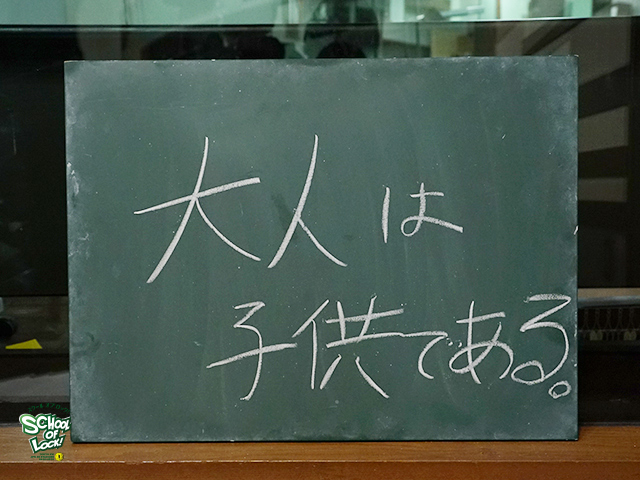 大人は
子供である。
SCHOOL
OF
LOCK!